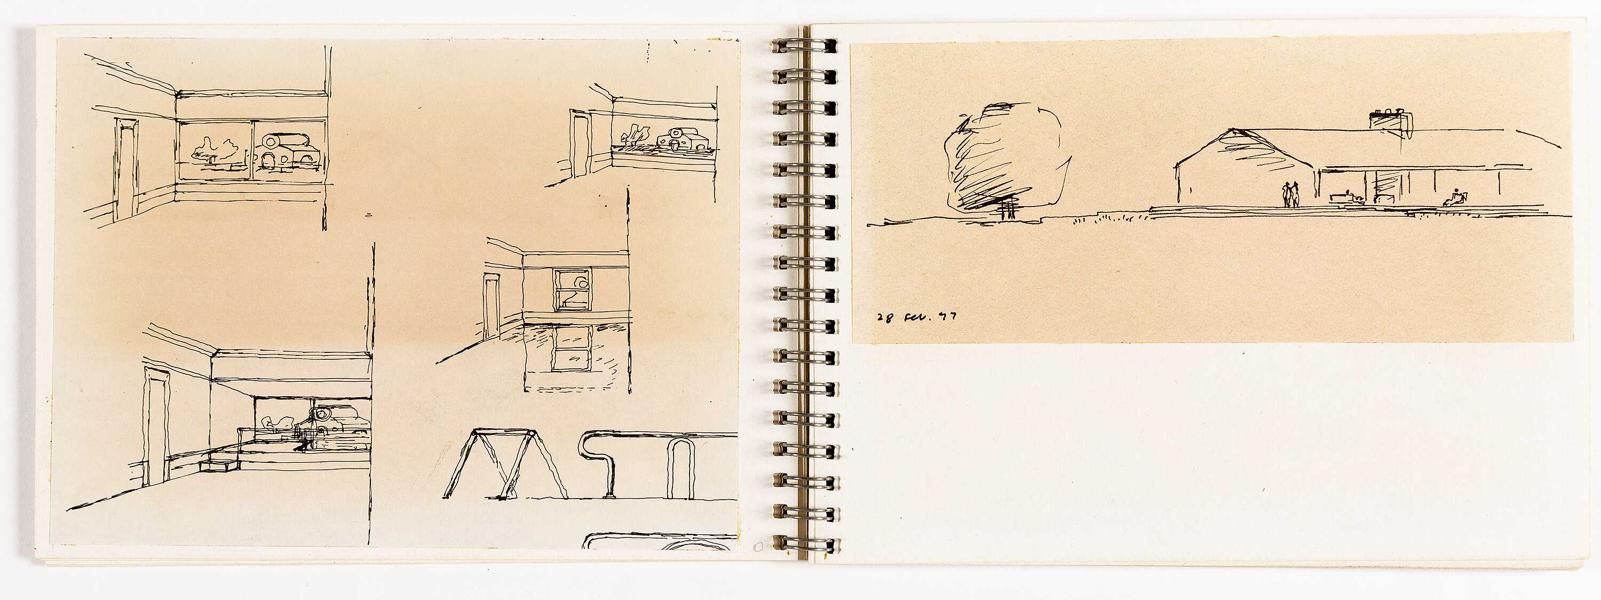 28 Feb. 77